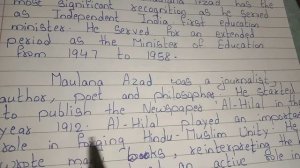 most significant recognition as he served
as Independent India, first education
minister. He served for an extended
period as the Minister of Education
from 1947 to 1958.
Maulana Azad was a journalist,
author, poet and philosopher. He started
to publish the Newspaper Al-Hilal in the
year 1912. Al-Hilal played an important
role in Forging Hindu-Muslim Unity. He
wrote many books, reinterpreting the
an active role